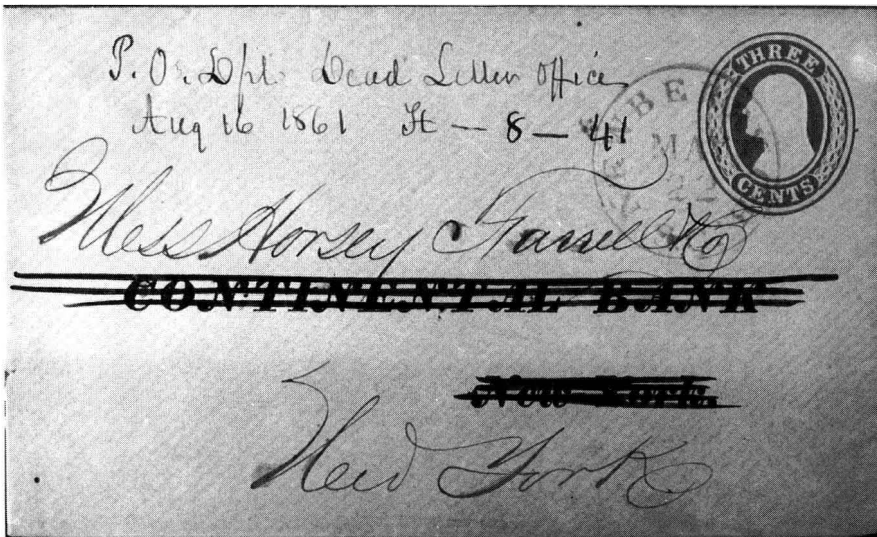 P. O. Dpt. Dead Letter Office
Aug 16 1861 H — 8 — 41
THREE
CENTS
Mess Horsey &Co
CONTINENTAL BANK
New York.
New York